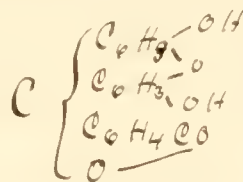 OH
C6H3
O
C { C6H3
OH
C6H4CO
O